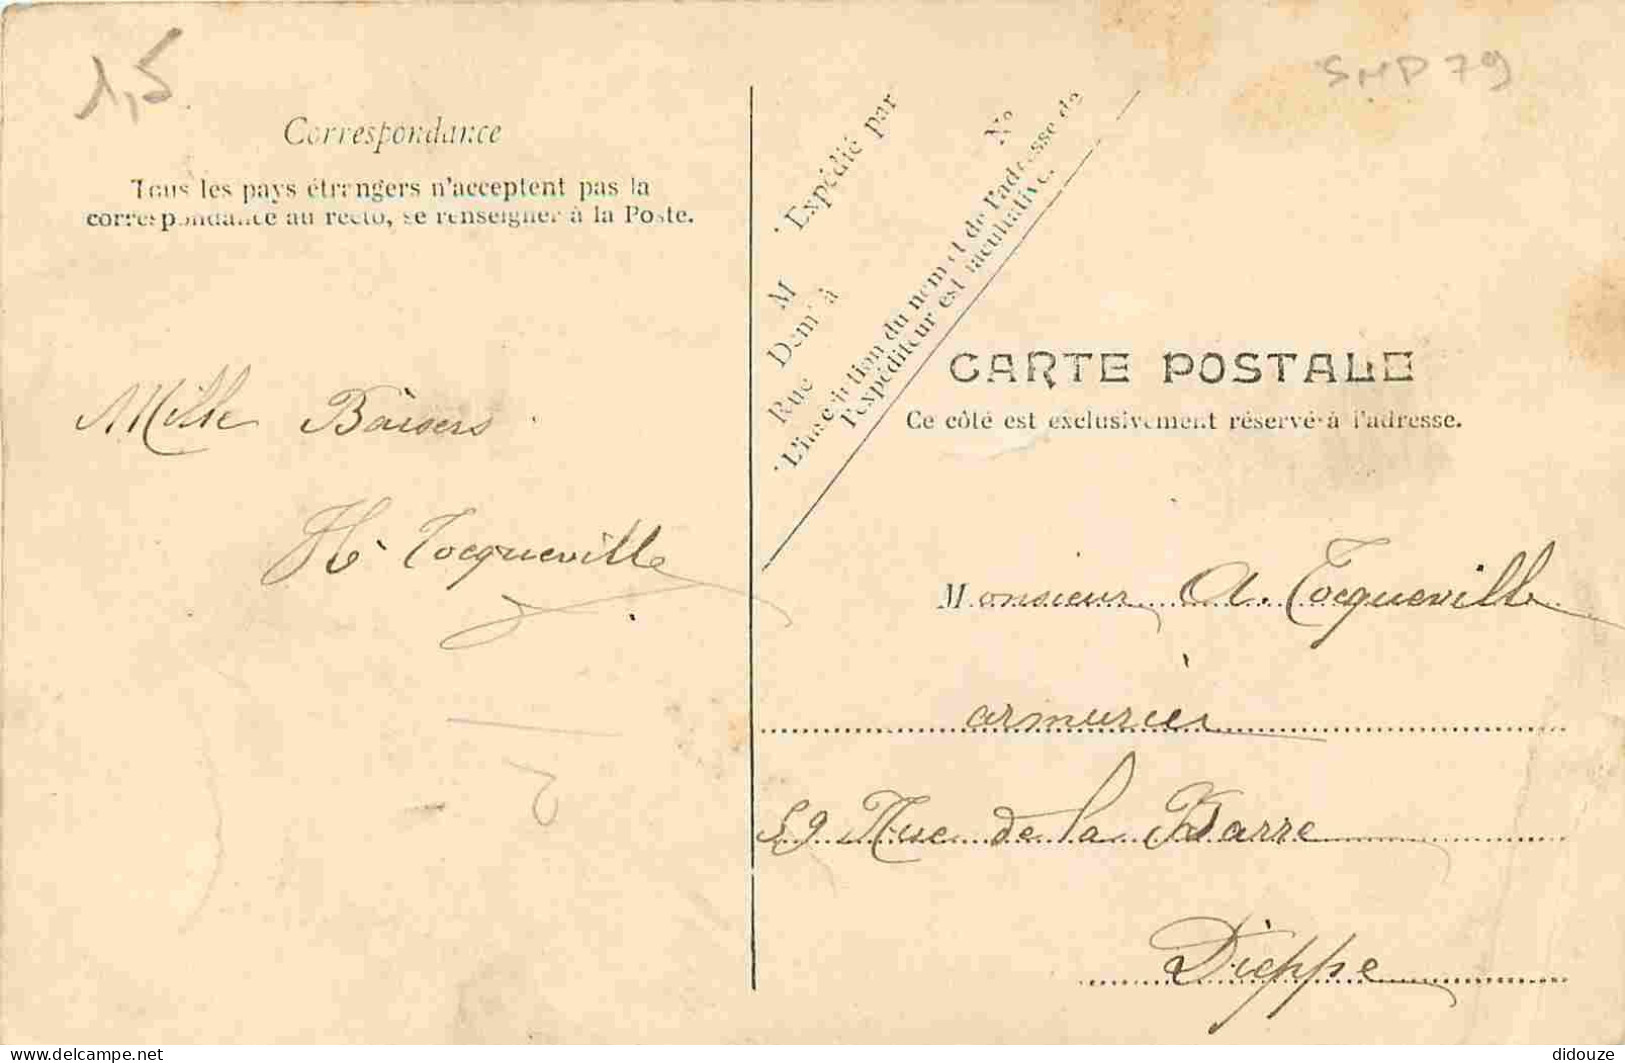 1,5
SMP 79
Correspondance
Tous les pays étrangers n'acceptent pas la
correspondance au recto, se renseigner à la Poste.
Mille Baisers
H. Tocqueville
Expédié par
M
Demt à
Rue
N°
L'inscription du nom et de l'adresse de
l'expéditeur est facultative.
CARTE POSTALE
Ce côté est exclusivement réservé à l'adresse.
Monsieur A. Tocqueville
armurier
59 Rue de la Barre
Dieppe
delcampe.net
didouze